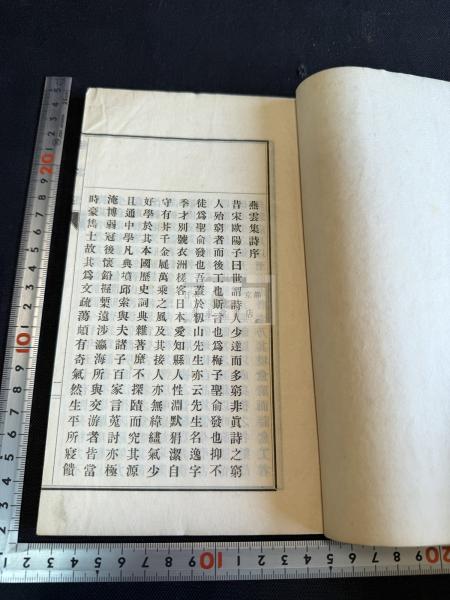 燕雲集詩序
昔宋歐陽子曰世謂詩人少達而多窮非眞詩之窮
人殆窮者而後工也斯言也爲梅子聖俞發也抑不
徒爲聖俞發也吾蓋於初山先生亦云先生名逸字
季才別號衣洲槎客日本愛知縣人性淵默狷潔自
守有芥千金屣萬乘之風及其接人亦無緯繣氣少
好學於其本國歷史詞典雜著靡不探賾而究其源
且通中學凡典墳邱索與夫諸子百家言蒐討亦極
淹博弱冠後懷鉛握槧遠涉瀛海所與交游者皆當
時豪雋士故其爲文疏蕩頗有奇氣然生平所寢饋